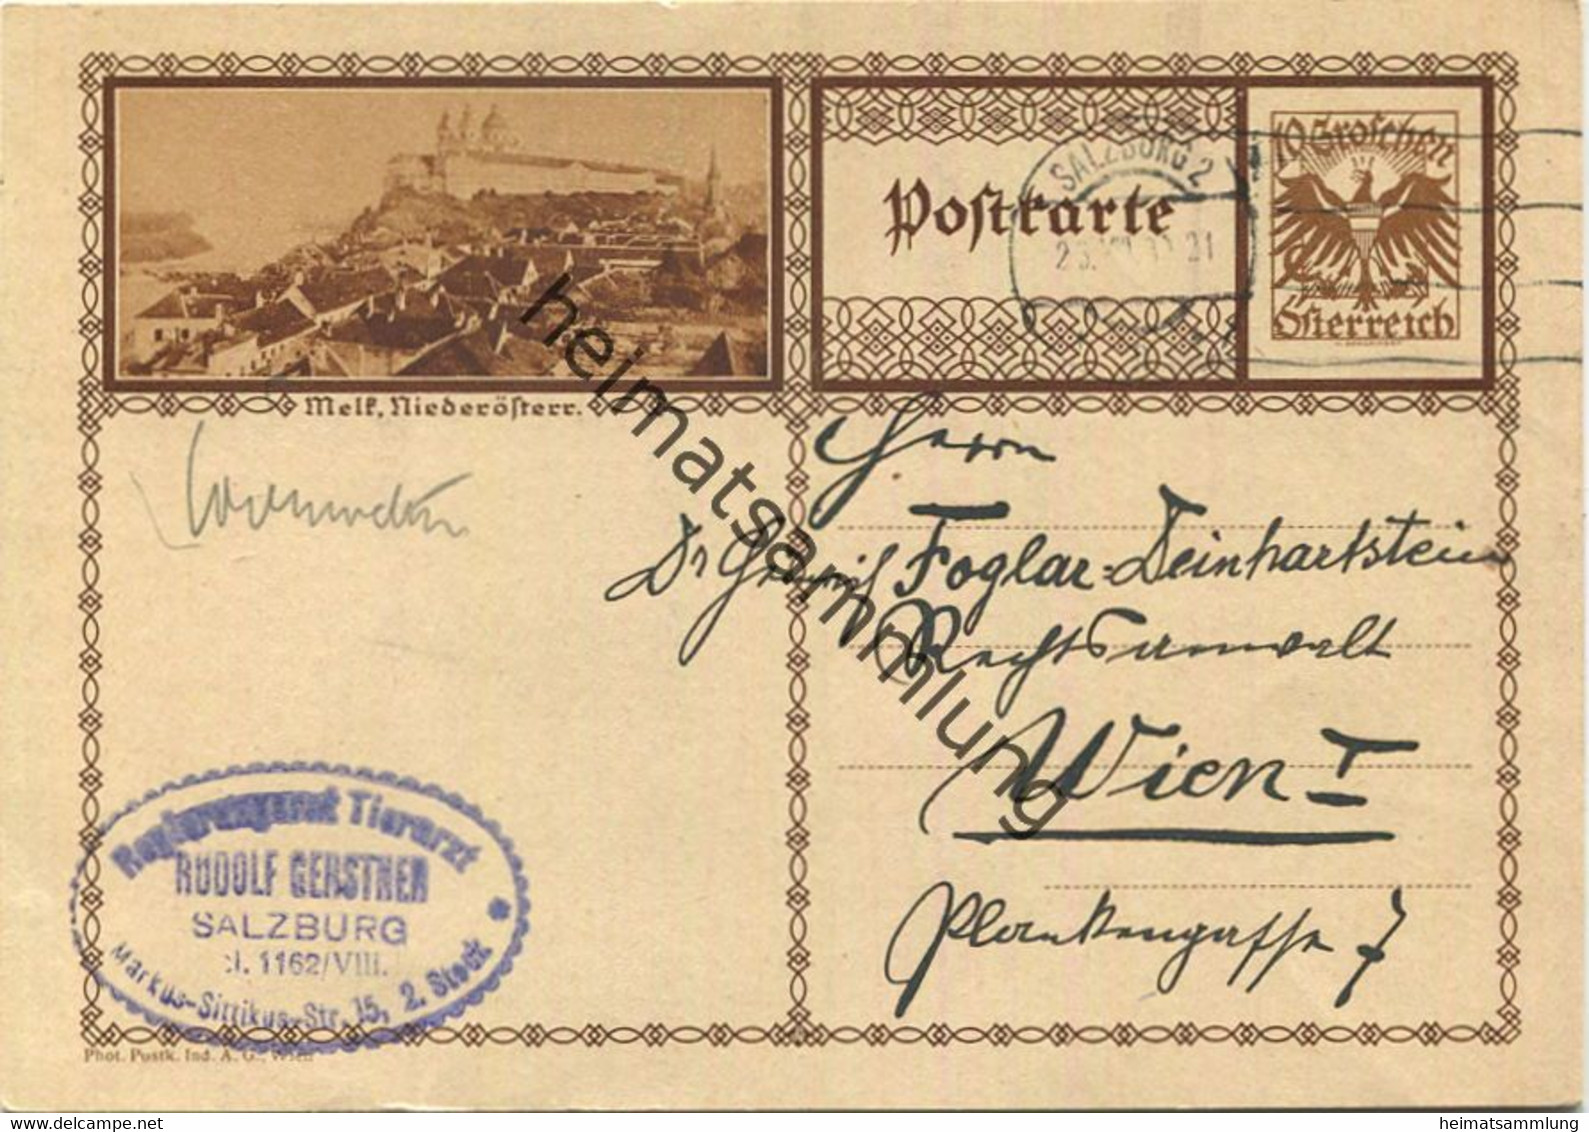 Melk, Niederösterr.
Postkarte
SALZBURG 2
10 Groschen
Österreich
Herrn
Dr Heinrich Foglar-Deinhartstein
Rechtsanwalt
Wien I
Plankengasse 7
Regierungsrat Tierarzt
RUDOLF GERSTNER
SALZBURG
1162/VIII.
Markus-Sittikus-Str. 15, 2. Stock
Phot. Postk. Ind. A. G., Wien
heimatsammlung
www.delcampe.net
heimatsammlung